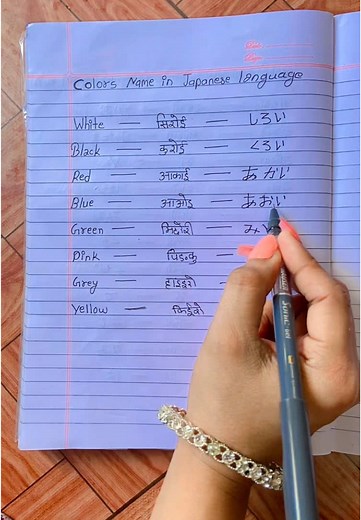 Colors Name in Japanese language
White — सिरोई — しろい
Black — कुरोई — くろい
Red — आकाई — あかい
Blue — आओई — あおい
Green — मिदोरी — み
Pink — पिङकु —
Grey — हाइइरो —
Yellow — किईरो